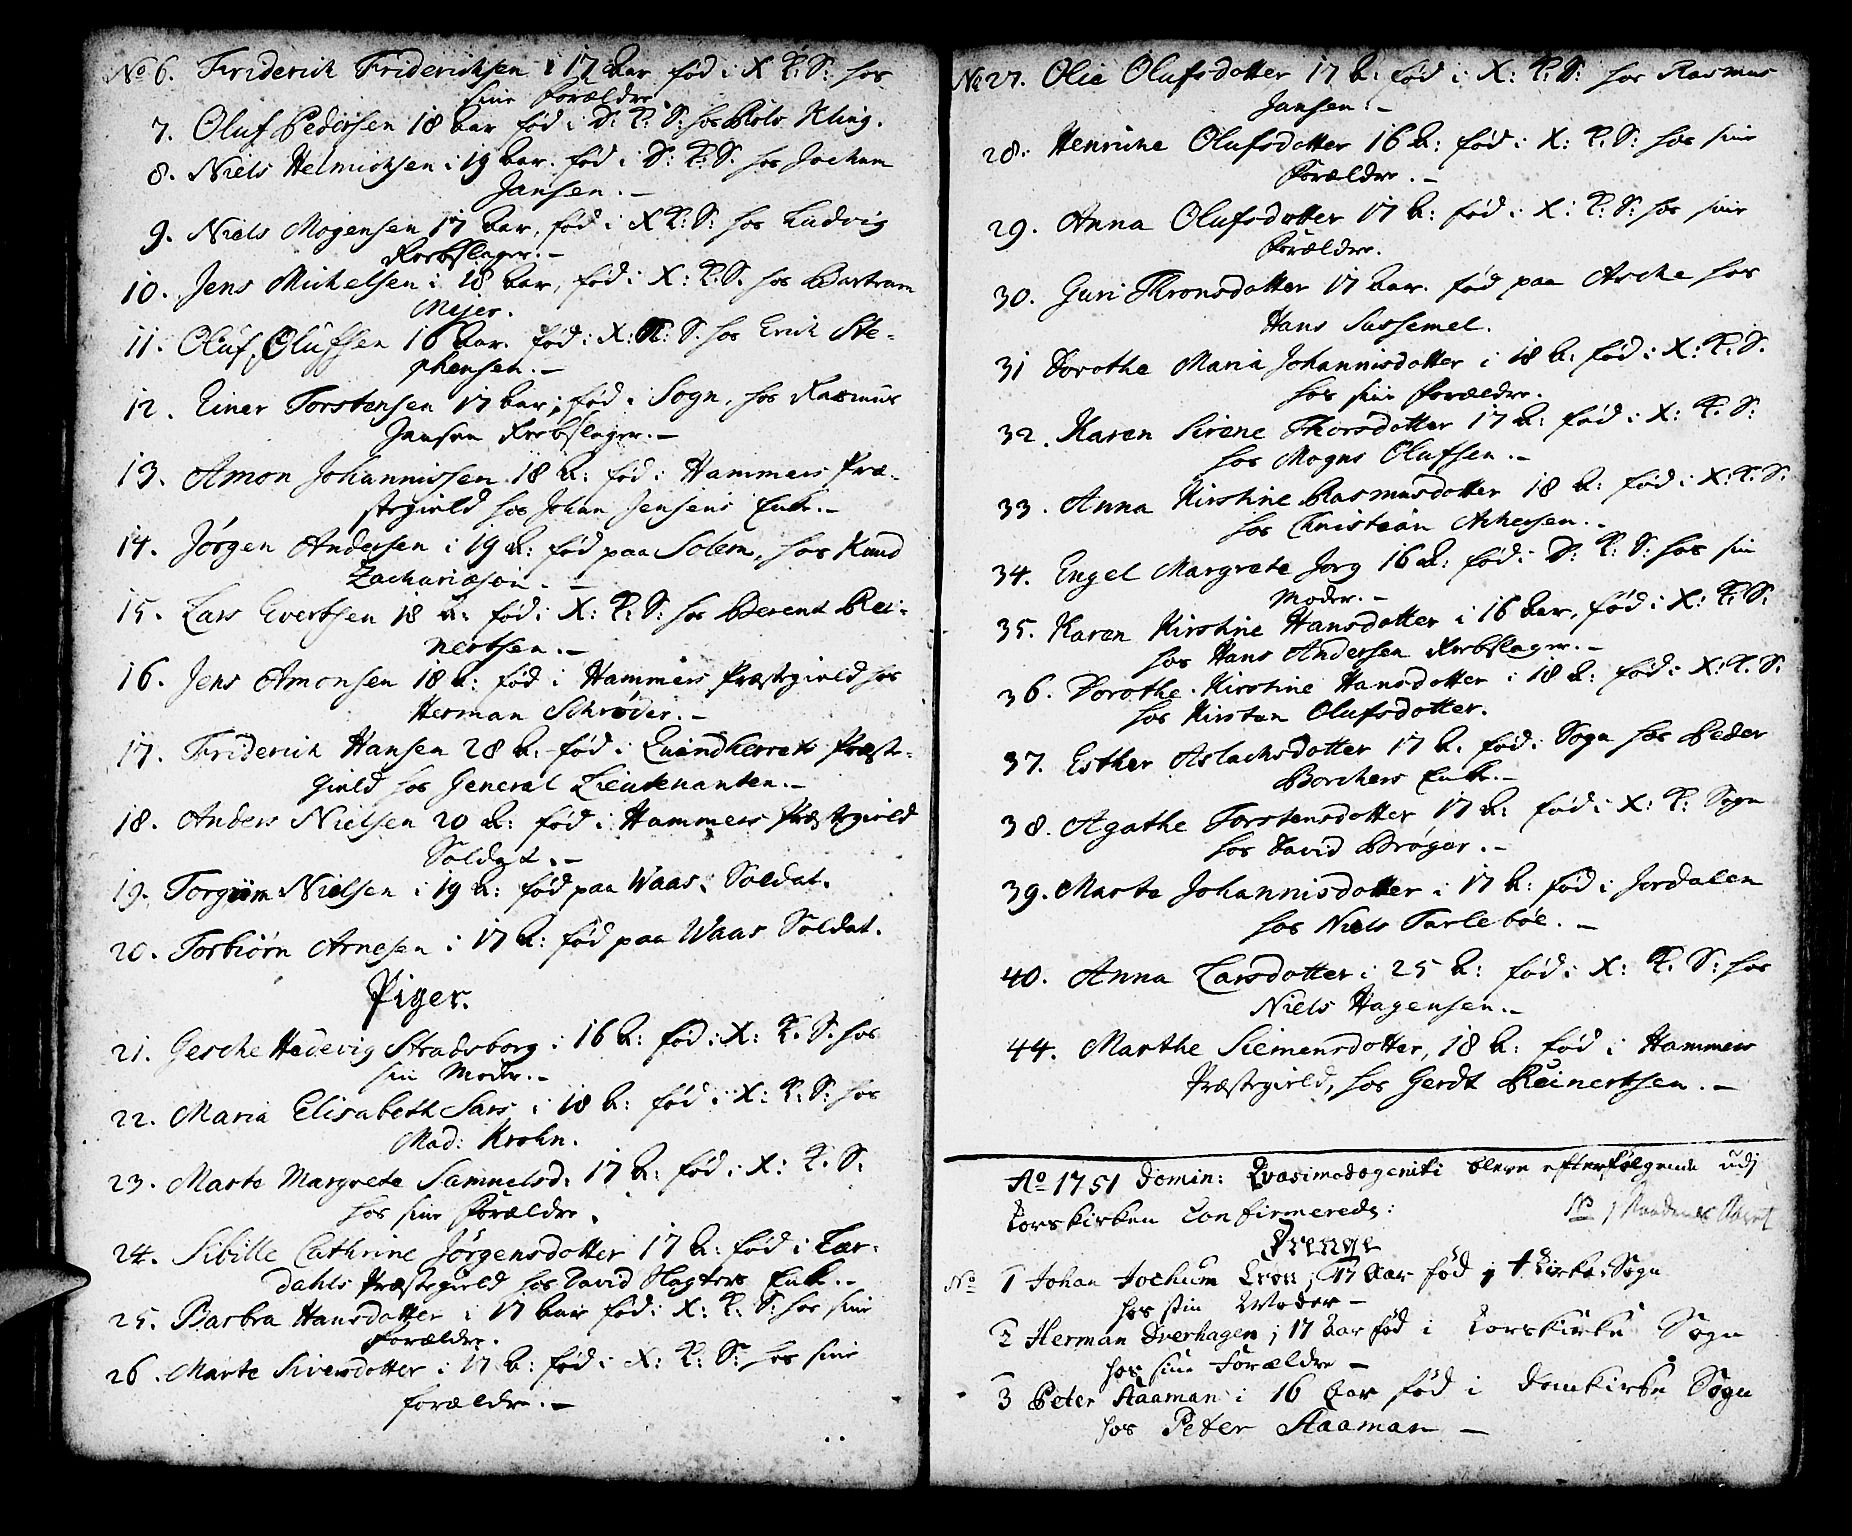 No 6. Friderich Friderichsen i 17 Aar fød i X K: S: hos
sine Forældre.
7. Oluf Pedersen 18 Aar fød i D: K: S: hos Rolv Kling.
8. Niels Helmichsen i 19 Aar. fød i D: K: S. hos Jochum
Jansen. –
9. Niels Mogensen 17 Aar, fød i X K: S: hos Ludvig
Reebslager. –
10. Jens Michelsen i 18 Aar, fød i X: K. S. hos Bartram
Mejer.
11. Oluf Oluffsen 16 Aar. fød i X: K: S. hos Erich Ste-
phensen. –
12. Einer Torstensen 17 Aar; fød i Sogn, hos Rasmus
Jansen Reebslager. –
13. Amon Johannissen 18 A: fød i Hammers Præ-
stegield hos Johan Jensens Enke. –
14. Jørgen Andersen i 19 A: fød paa Solem, hos Knud
Zachariæsøn. –
15. Lars Evertsen 18 A: fød i X: K: S: hos Berent Rei-
nertsen. –
16. Jens Amonsen 18 A: fød i Hammers Præstegield hos
Herman Schrøder. –
17. Friderich Hansen 28 A: fød i Qvindherrets Præste-
gield hos General Lieutenanten. –
18. Anders Nielsen 20 A: fød i Hammers Præstegield
Soldat. –
19. Torgiim Nielsen i 19 A: fød paa Waas. Soldat.
20. Torbiørn Arnesen i 17 A: fød paa Waas Soldat.
Piger.
21. Gesche Hedevig Stradsborg i 16 A: fød i X: K: S: hos
sin Moder. –
22. Maria Elisabeth Sars i 18 A: fød i X: K: S: hos
Mad: Krohn.
23. Marte Margrete Samuelsd: 17 A: fød i X: K. S:
hos sine Forældre.
24. Sibille Cathrine Jørgensdotter 17 A: fød i Lær-
dahls Præstegield hos David Slagters Enke. –
25. Barbra Hansdotter i 17 Aar fød i X: K: S: hos sine
Forældre.
26. Marte Siversdotter i 17 A: fød i X: K: S: hos sine
forældre. –
No 27. Olie Olufsdotter 17 A: fød i X: K: S: hos Rasmus
Jansen. –
28. Henriche Olufsdotter 16 A: fød i X: K: S: hos sine
Forældre. –
29. Anna Olufsdotter 17 A: fød i X: K: S: hos sine
Forældre.
30. Guri Thronsdotter 17 Aar. fød paa Asche hos
Hans Sussemel.
31 Dorothe Maria Johannisdotter i 18 A: fød i X: K: S.
hos sine Forældre.
32. Karen Sirene Thorsdotter 17 A: fød i X: K. S:
hos Mogns Olufsen. –
33. Anna Kirstine Rasmusdotter 18 A: fød i X: K: S:
hos Christian Achersen. –
34. Engel Margrete Jorg 16 A: fød i D: K: S: hos sin
Moder. –
35. Karen Kirstine Hansdotter i 16 Aar, fød i X: K: S:
hos Hans Andersen Reebslager. –
36. Dorothe Kirstine Hansdotter i 18 A: fød i X: K: S:
hos Kirsten Olufsdotter.
37. Esther Aslachsdotter 17 A. fød i Sogn hos Peder
Borchers Enke. –
38. Agathe Torstensdotter 17 A: fød i X: K: Sogn
hos David Brøger. –
39. Marte Johannisdotter i 17 A: fød i Jordalen
hos Niels Tarlebøe. –
40. Anna Larsdotter i 25 A: fød i X: K: S: hos
Niels Hagensen. –
44. Marthe Siemensdotter, 18 A: fød i Hammers
Præstegield, hos Gerdt Reinertsen. –
Ao 1751 Domin: Qvasimodogeniti bleve efterfølgende udj
Korskirken Confirmerede:
Drenge
No 1 Johan Jochum Cron j 17 Aar fød j † Kirke Sogn
hos sin Moder –
2 Herman Overhagen j 17 Aar fød i Korskirke Sogn
hos sine Forældre –
3 Peter Aaaman i 16 Aar fød i Domkirke Sogn
hos Peter Aaaman –